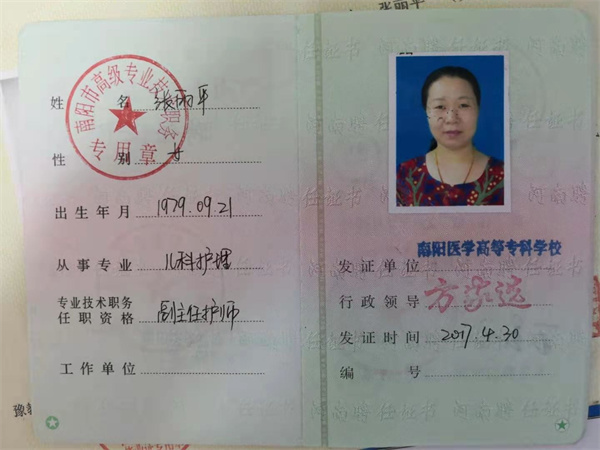 张丽平
南阳市高级专业技术职务
专用章
姓 名 张丽平
性 别 女
出生年月 1979.09.21
从事专业 儿科护理
专业技术职务
任职资格 副主任护师
工作单位
南阳医学高等专科学校
发证单位
行政领导
发证时间 2017.4.30
编 号
河南聘任证书